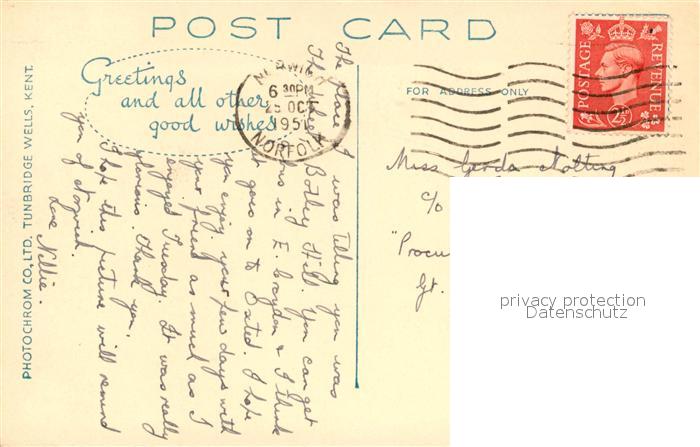 POST CARD
Greetings
and all other
good wishes
FOR ADDRESS ONLY
PHOTOCHROM CO., LTD. TUNBRIDGE WELLS, KENT.
NORWICH
6 30PM
25 OCT
1951
NORFOLK
POSTAGE
REVENUE
2½
The place I was telling you was
Botley Hill. You can get
bus in E. Croydon & I think
it goes on to Oxted. I hope
you enjoy your few days with
your friend as much as I
enjoyed Tuesday. It was really
glorious. Thank you.
I hope this picture will remind
you of Norwich.
Love Nellie.
Miss Gerda Nolting
c/o
"Procu
Gt.
privacy protection
Datenschutz